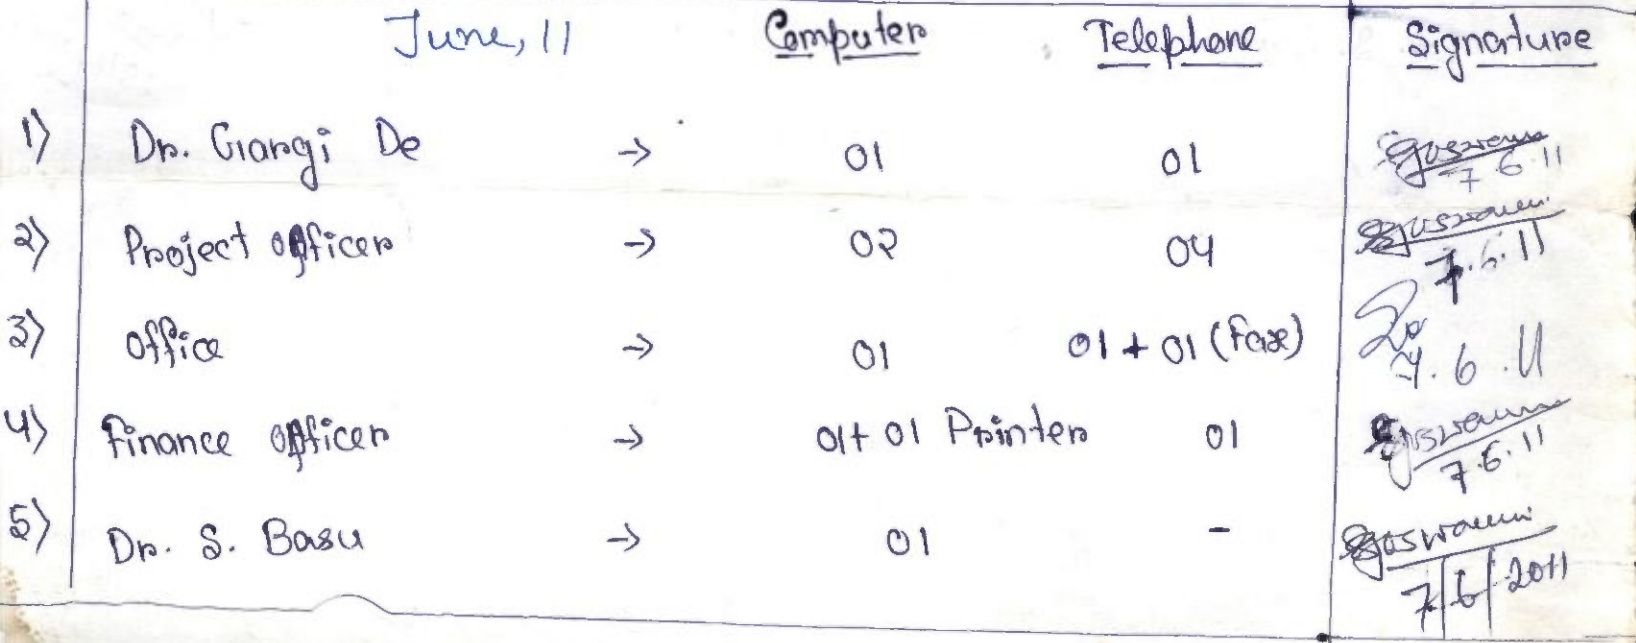 June, 11 Computer Telephone Signature
1) Dr. Gargi De → 01 01 Goswami 7.6.11
2) Project officer → 02 04 Goswami 7.6.11
3) office → 01 01 + 01 (Fax) 7.6.11
4) Finance officer → 01+ 01 Printer 01 Goswami 7.6.11
5) Dr. S. Basu → 01 - Goswami 7/6/2011